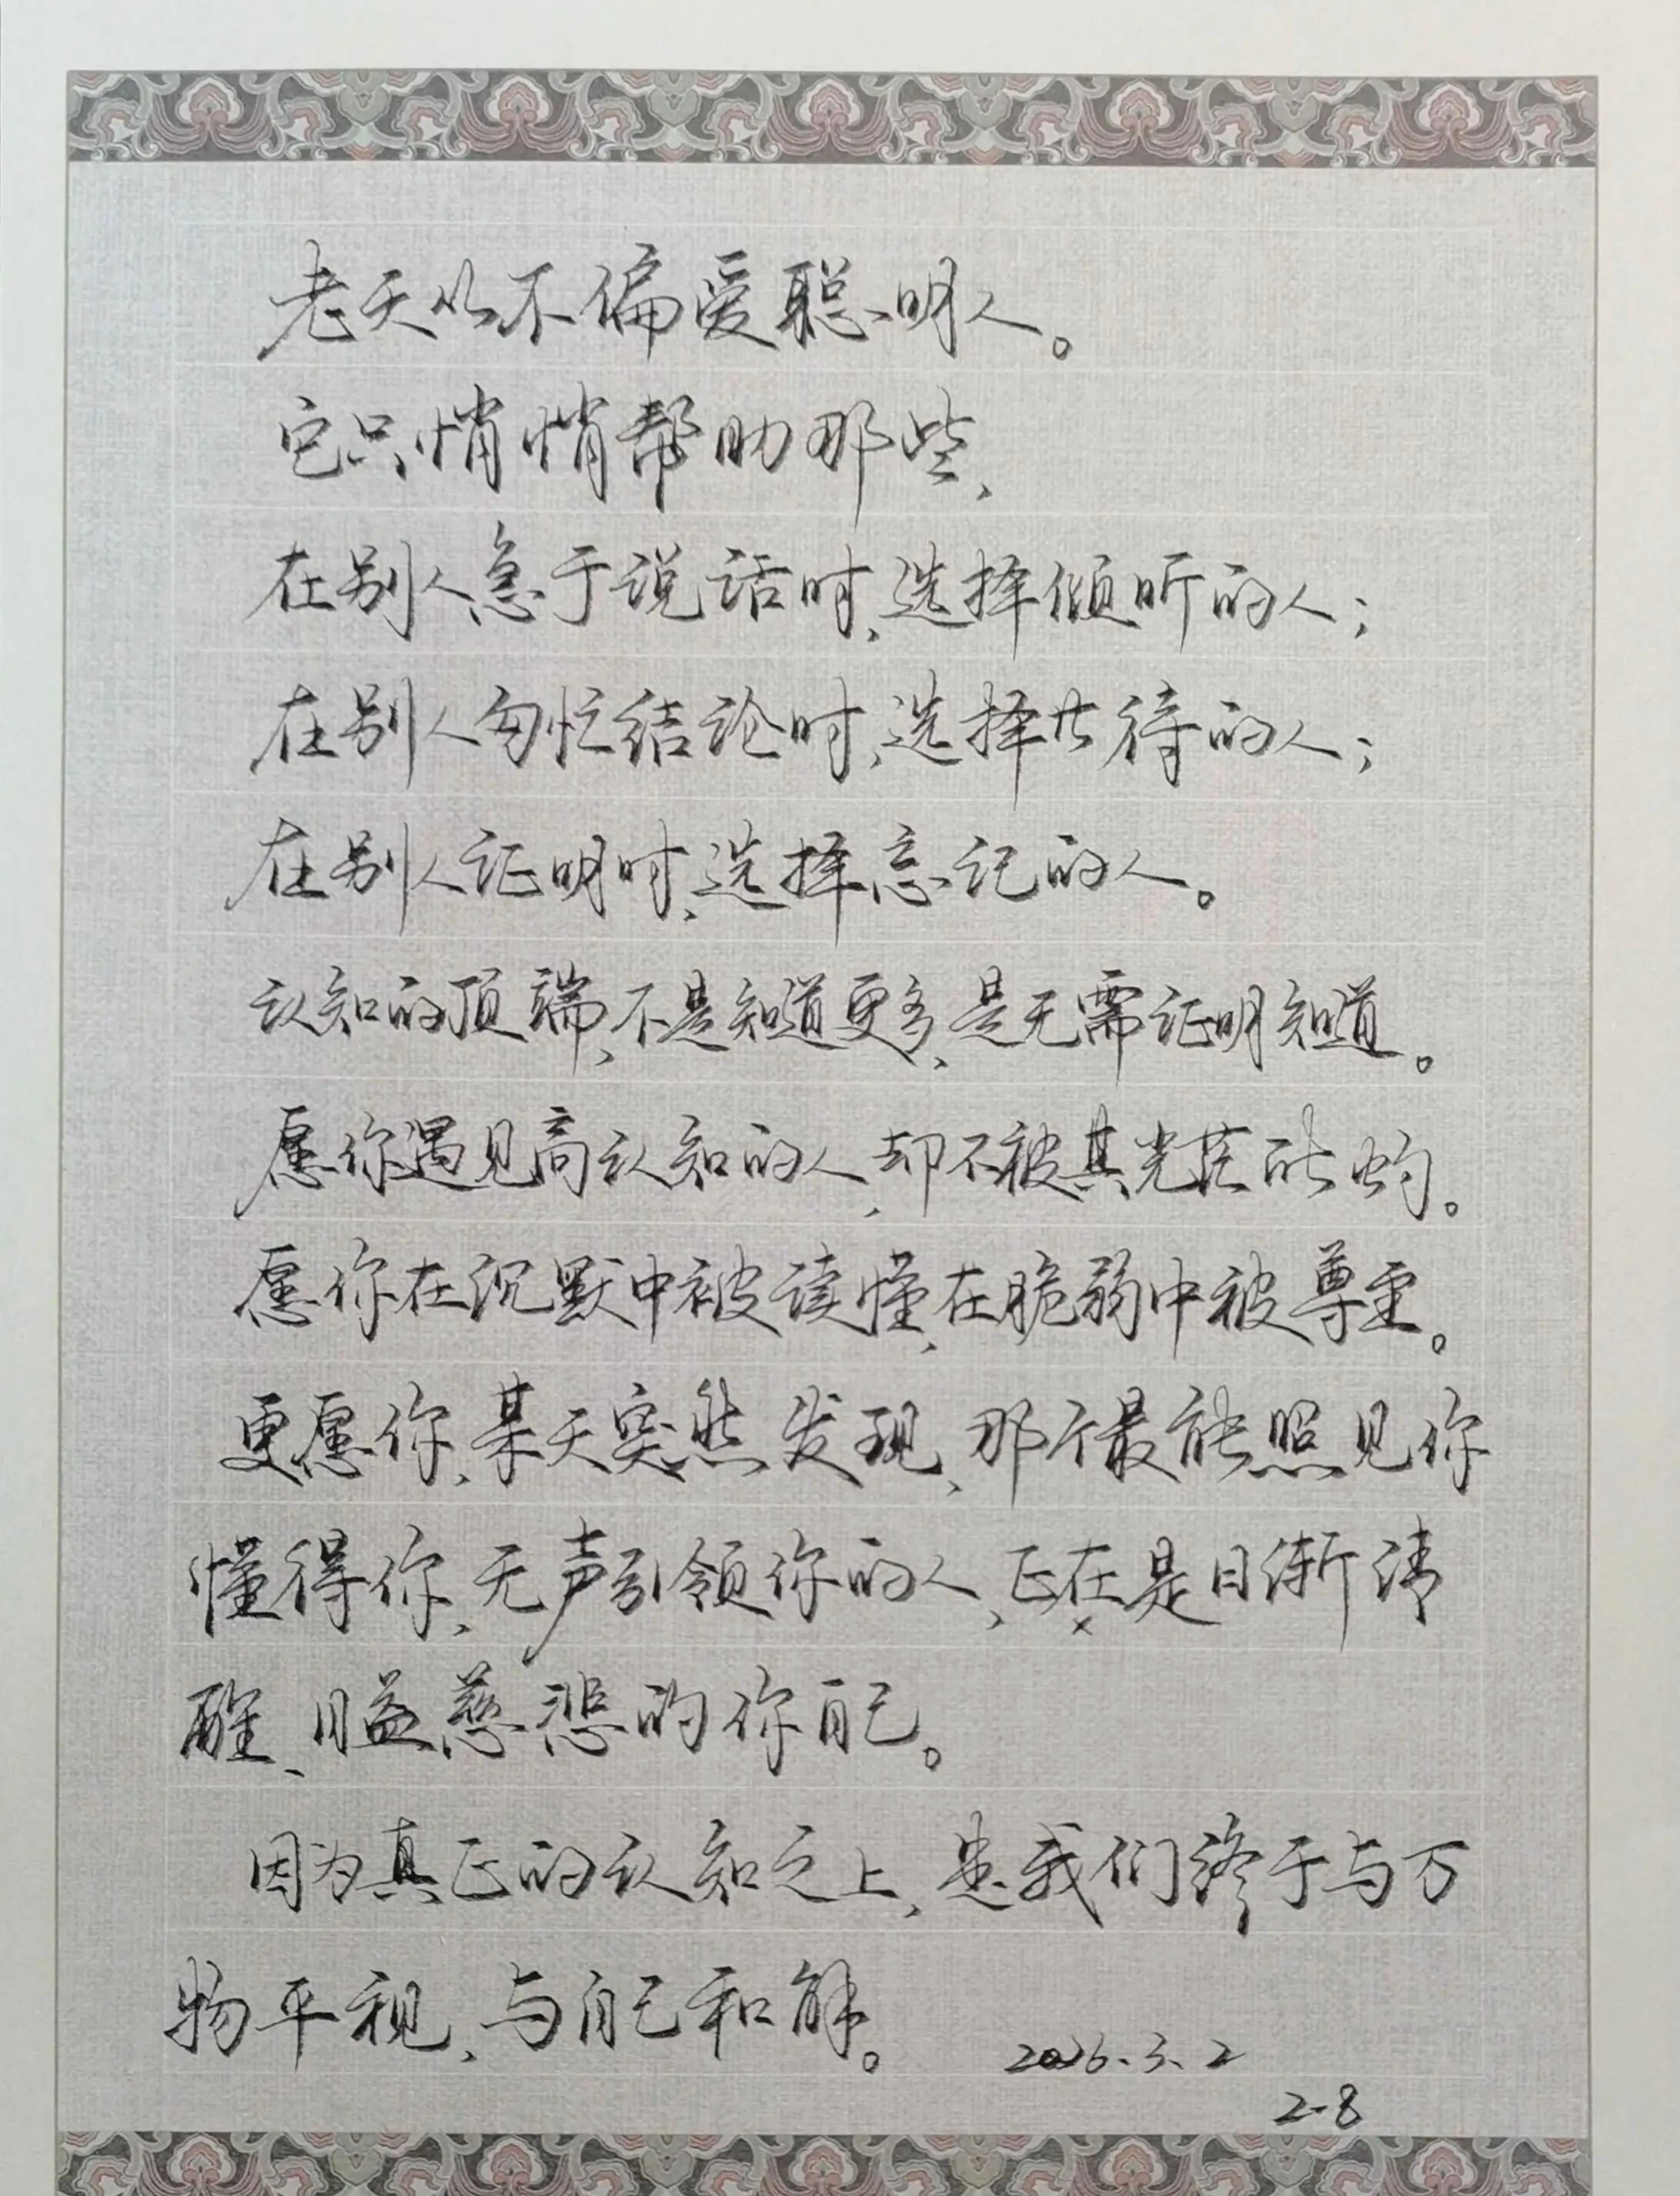 老天从不偏爱聪明人。
它只悄悄帮助那些，
在别人急于说话时，选择倾听的人；
在别人匆忙结论时，选择等待的人；
在别人证明时，选择忘记的人。
认知的顶端，不是知道更多，是无需证明知道。
愿你遇见高认知的人，却不被其光芒所灼。
愿你在沉默中被读懂，在脆弱中被尊重。
更愿你，某天突然发现，那个最能照见你
懂得你，无声引领你的人，正在是日渐清
醒、日益慈悲的你自己。
因为真正的认知之上，是我们终于与万
物平视，与自己和解。
2026.3.2
2-8